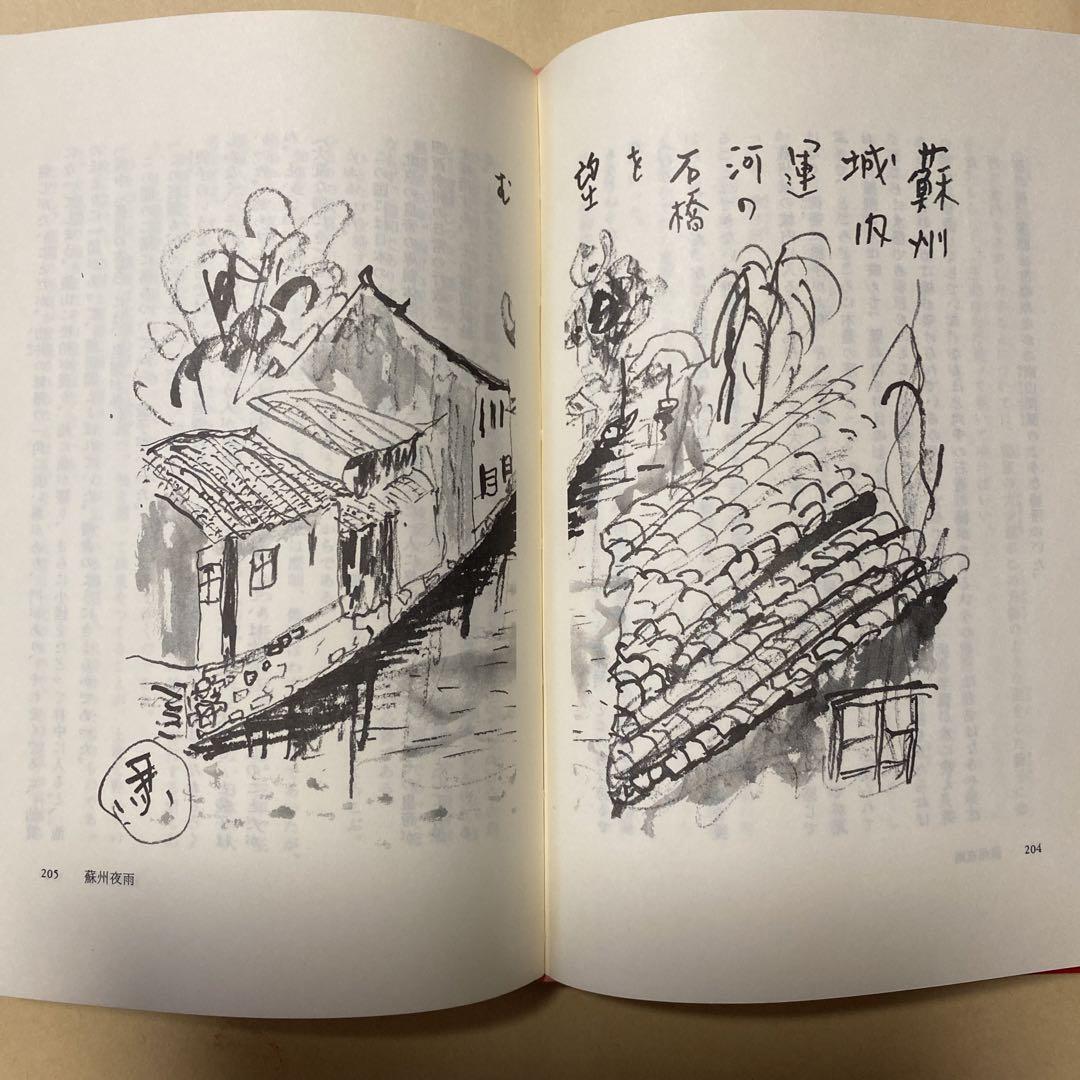 蘇州
城内
運
河の
石橋
を
望
む
204
205 蘇州夜雨